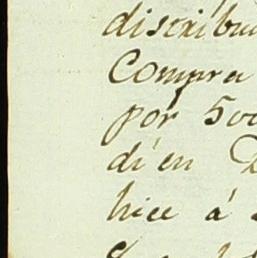 distribu
Compra
por 500
di en
hice á